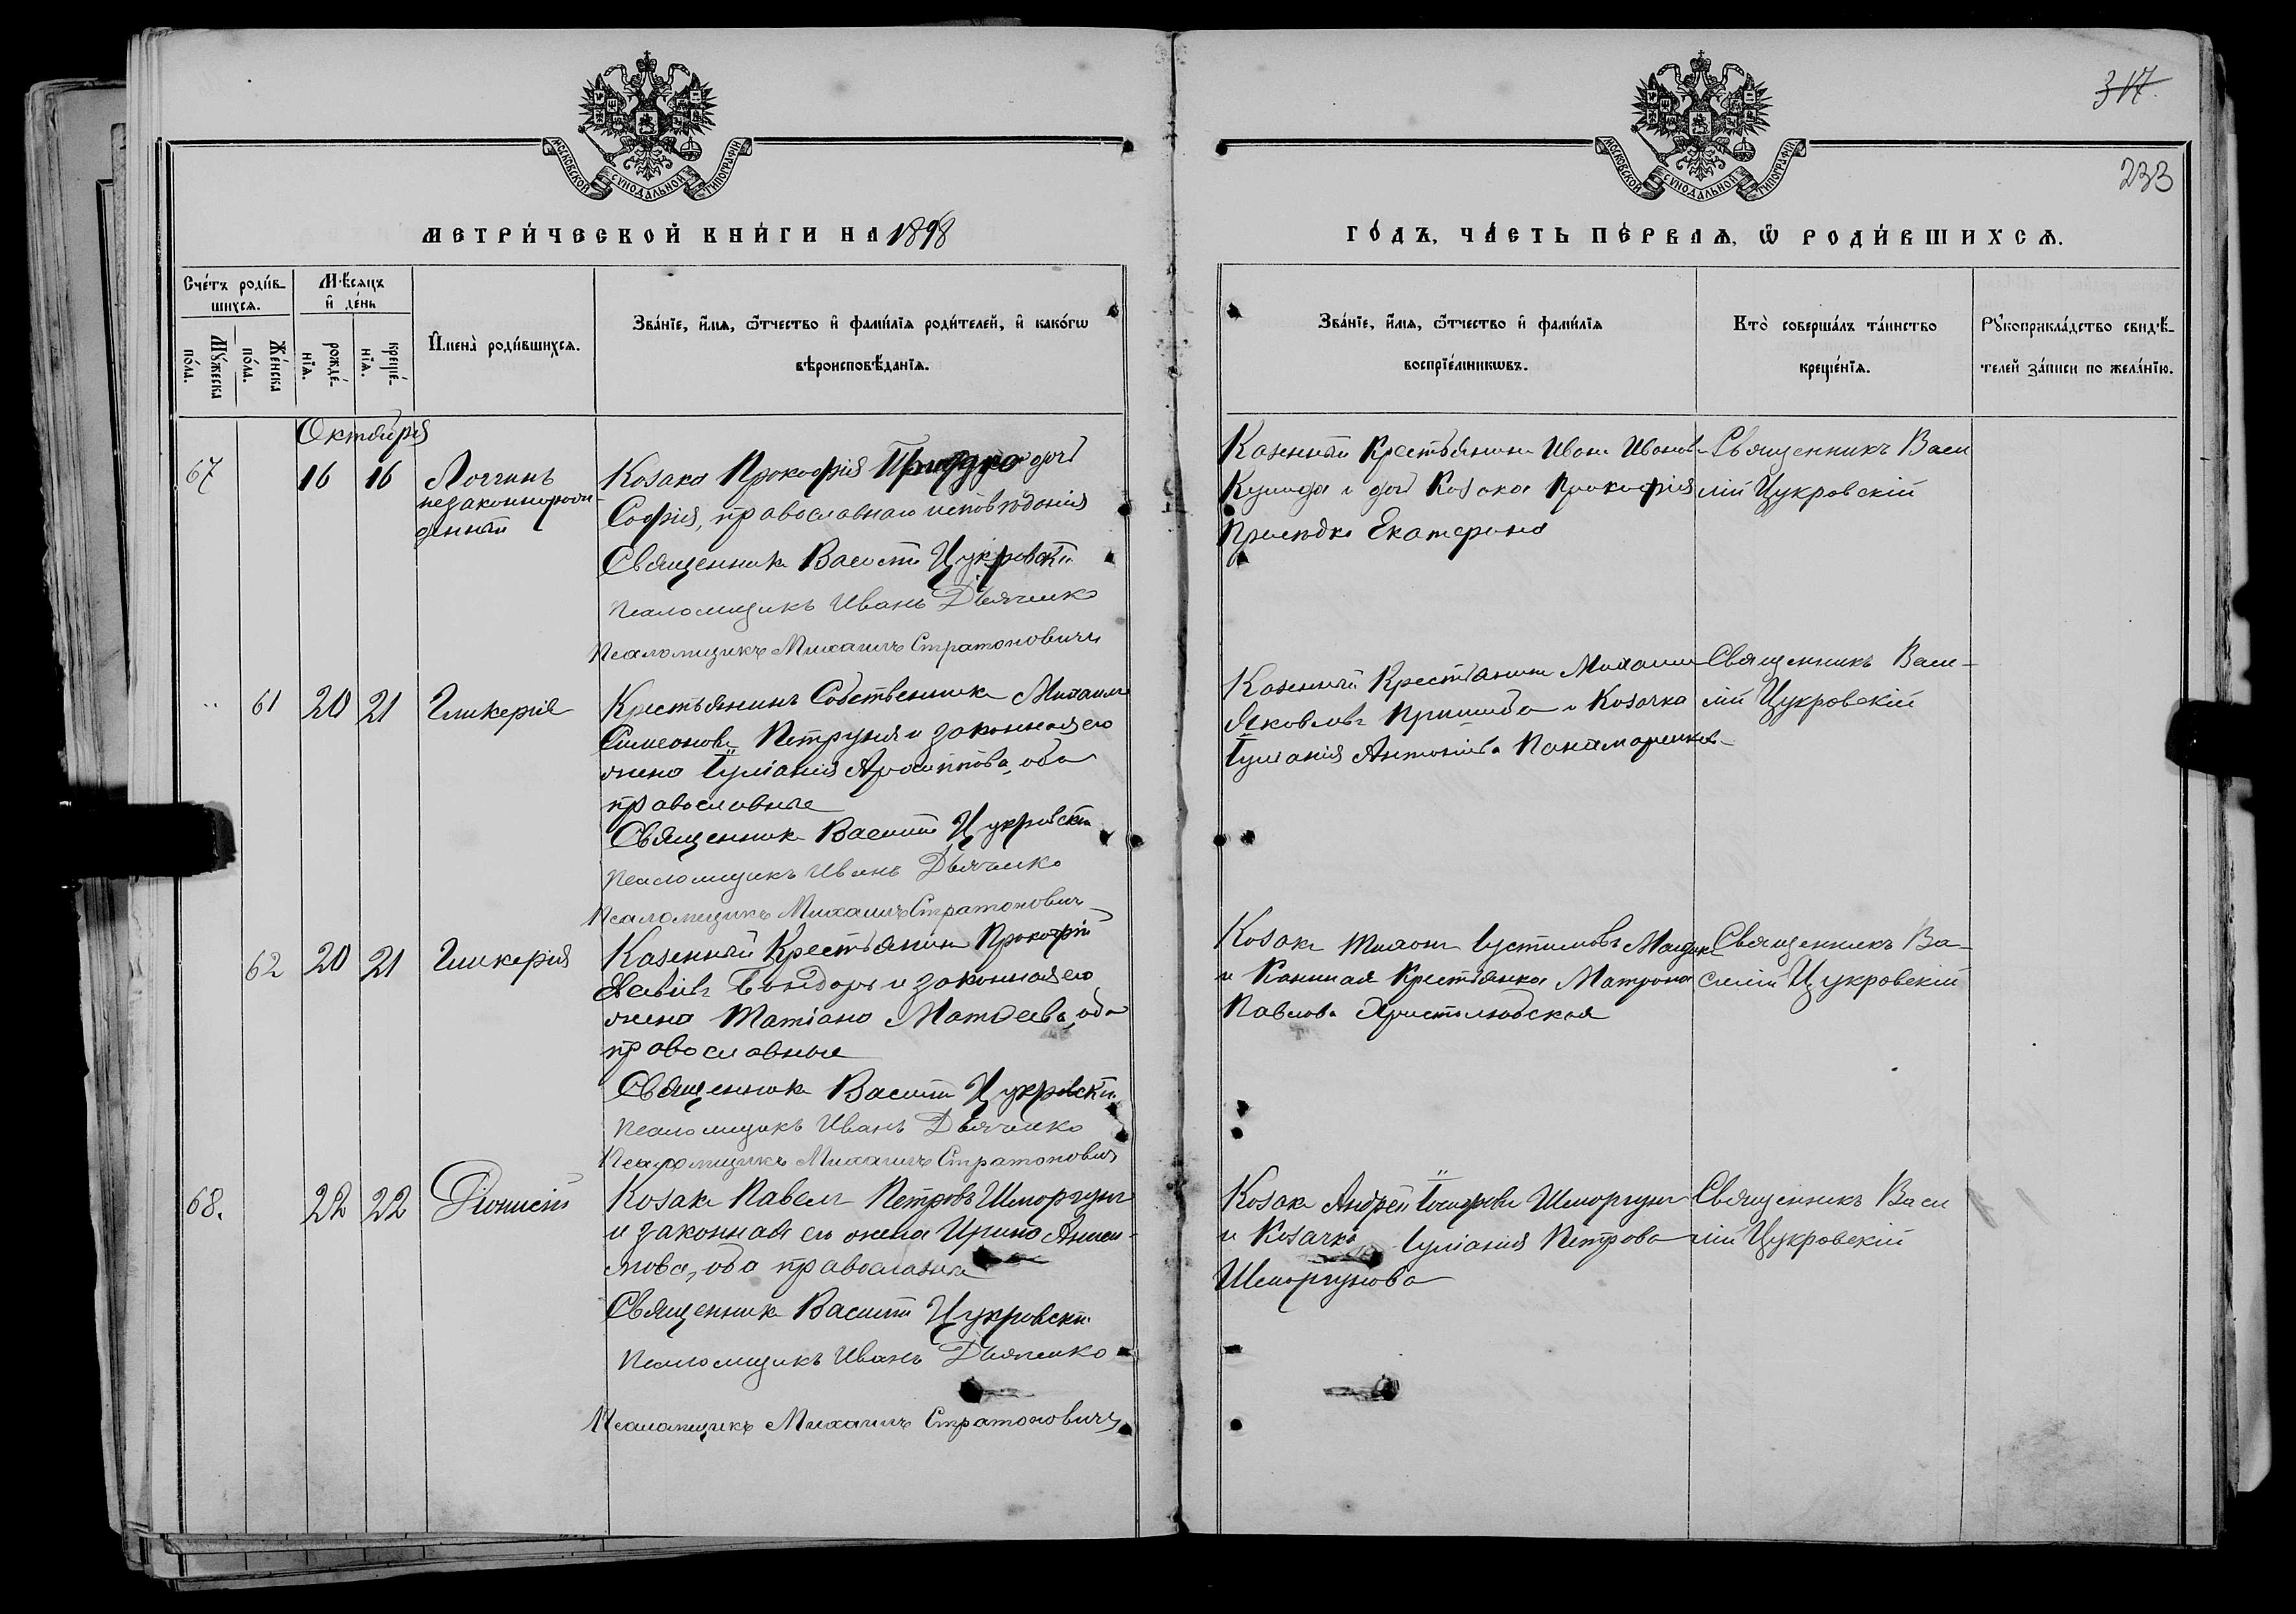 317.
233
МОСКОВСКОЙ СѴНОДАЛЬНОЙ ТИПОГРАФІИ
МОСКОВСКОЙ СѴНОДАЛЬНОЙ ТИПОГРАФІИ
МЕТРИ́ЧЕСКОЙ КНИ́ГИ НА 1898
ГО́ДЪ, ЧА́СТЬ ПЕ́РВАЯ, Ѡ РОДИ́ВШИХСЯ.
Сче́тъ роди́в-
шихся.
Му́жеска
по́ла.
Же́нска
по́ла.
Мѣ́сяцъ
и҆ де́нь
рожде́-
нїя.
креще́-
нїя.
И҆мена̀ роди́вшихся.
Зва́нїе, и҆́мя, ѻ҆́тчество и҆ фами́лїя роди́телей, и҆ како́гѡ
вѣроисповѣ́данїя.
Зва́нїе, и҆́мя, ѻ҆́тчество и҆ фами́лїя
воспрїе́мникѡвъ.
Кто̀ соверша́лъ та́инство
креще́нїя.
Рꙋкоприкла́дство свидѣ́-
телей за́писи по жела́нїю.
Октября
67
16
16
Логгинъ
незаконнорож-
денный
Козака Прокофія дочь
Софія, православнаго исповѣданія
Священникъ Василій Цукровскій
Псаломщикъ Иванъ Дьяченко
Псаломщикъ Михаилъ Стратоновичъ
Казенный Крестьянинъ Иванъ Ивановъ
и дочь Козака Прокофія
Екатерина
Священникъ Васи
лій Цукровскій
61
20
21
Гликерія
Крестьянинъ Собственникъ Михаилъ
Симеоновъ Петруня и законная его
жена Іуліанія, оба
православные
Священникъ Василій Цукровскій
Псаломщикъ Иванъ Дьяченко
Псаломщикъ Михаилъ Стратоновичъ
Казенный Крестьянинъ Михаилъ
Яковлевъ и Козачка
Іуліанія Антоніева Понамаренкова
Священникъ Васи-
лій Цукровскій
62
20
21
Гликерія
Казенный Крестьянинъ Прокофій
Бондарь и законная его
жена Татіана Матѳеева, оба
православные
Священникъ Василій Цукровскій
Псаломщикъ Иванъ Дьяченко
Псаломщикъ Михаилъ Стратоновичъ
Козакъ Іустиновъ
и Казенная Крестьянка Матрона
Павлова Христолюбская
Священникъ Ва-
силій Цукровскій
68.
22
22
Діонисій
Козакъ Павелъ Петровъ Шморгунъ
и законная его жена Ирина Аниси-
мова, оба православные
Священникъ Василій Цукровскій
Псаломщикъ Иванъ Дьяченко
Псаломщикъ Михаилъ Стратоновичъ
Козакъ Андрей Шморгунъ
и Козачка Іуліанія Петрова
Шморгунова
Священникъ Васи
лій Цукровскій